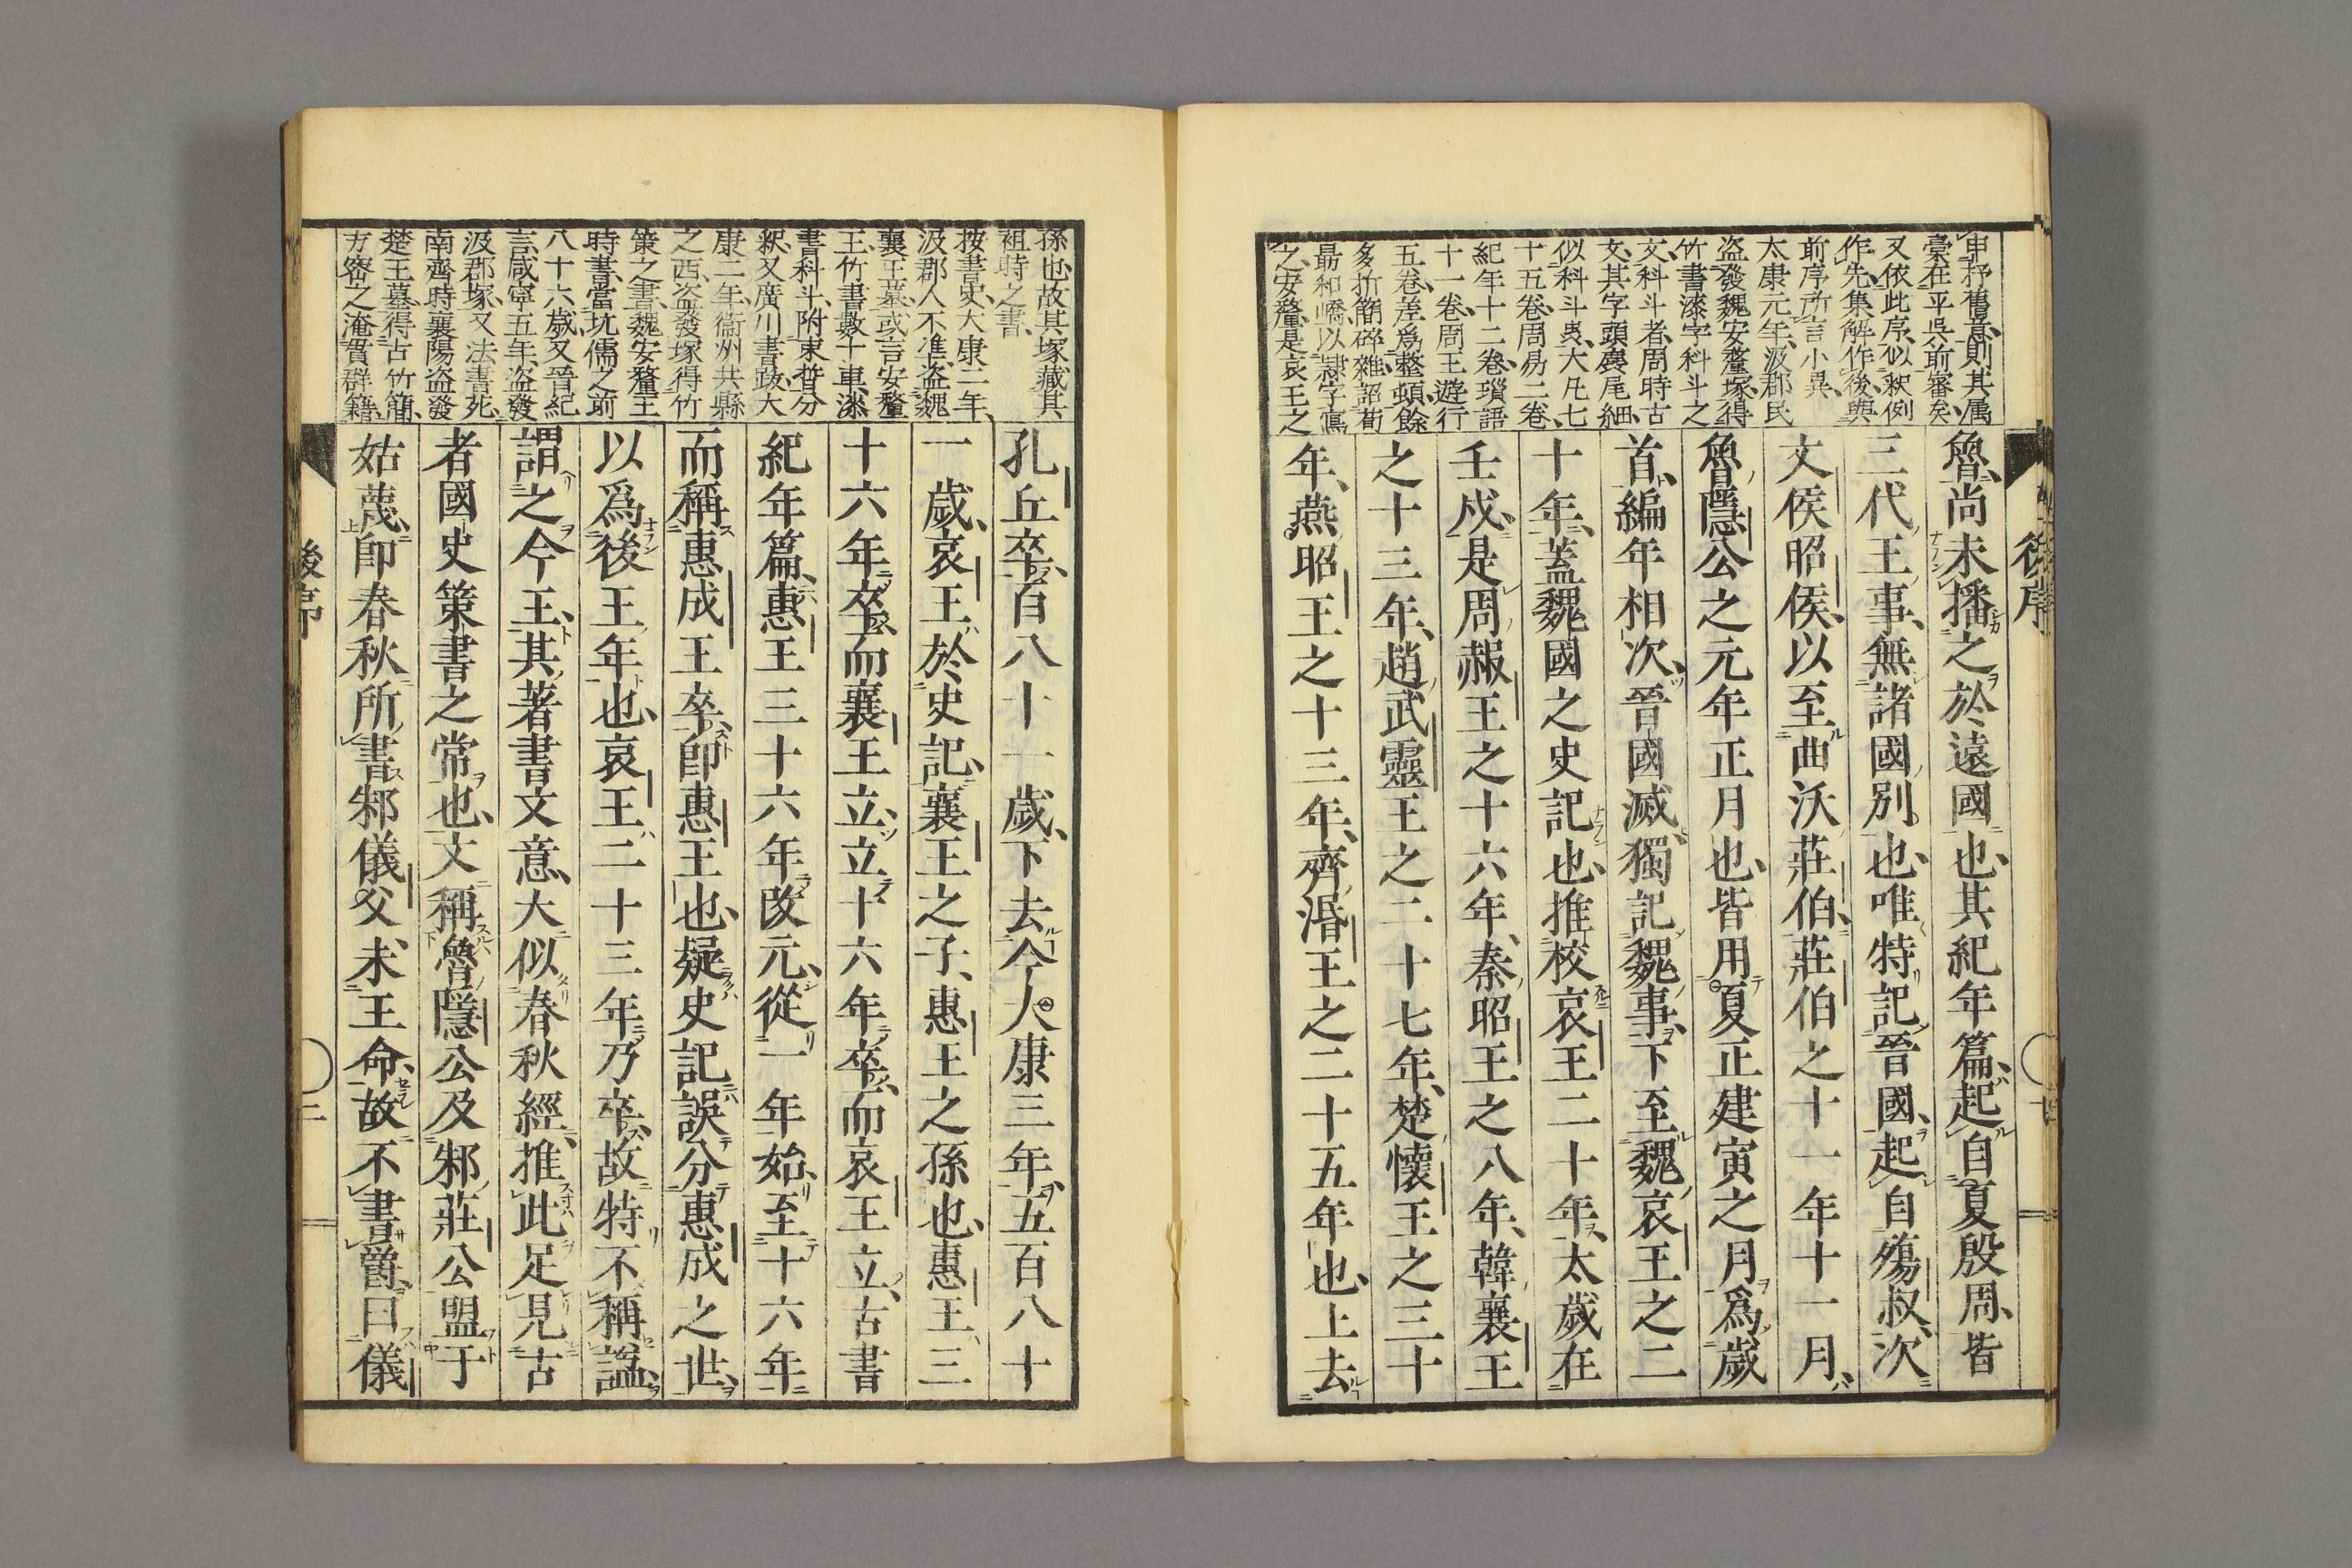 後序
申杼舊意則其属
稾在平呉前審矣
又依此序似釈例
作先集解作後與
前序所言小異
太康元年汲郡民
盗發魏安釐塚得
竹書漆字科斗之
文科斗者周時古
文其字頭麄尾細
似科斗虫大凡七
十五卷周易二卷
紀年十二卷瑣語
十一卷周王遊行
五卷差爲整頓餘
多折簡碎雜詔荀
勗和嶠以隷字寫
之安釐是哀王之
魯尚未播之於遠國也其紀年篇起自夏殷周皆
三代王事無諸國別也唯特記晉國起自殤叔次
文侯昭侯以至曲沃莊伯莊伯之十一年十一月
魯隱公之元年正月也皆用夏正建寅之月爲歲
首編年相次晉國滅獨記魏事下至魏哀王之二
十年蓋魏國之史記也推校哀王二十年太歲在
壬戍是周赧王之十六年秦昭王之八年韓襄王
之十三年趙武靈王之二十七年楚懷王之三十
年燕昭王之十三年齊湣王之二十五年也上去
孫也故其塚藏其
祖時之書
按書史大康二年
汲郡人不准盗魏
襄王墓或言安釐
王竹書數十車漆
書科斗附束晳分
釈又廣川書跋大
康二年衞州共縣
之西盗發塚得竹
策之書魏安釐王
時書當坑儒之前
八十六歲又晉紀
言咸寧五年盗發
汲郡塚又法書苑
南齊時襄陽盗發
楚王墓得古竹簡
方密之淹貫群籍
孔丘卒百八十一歲下去今大康三年五百八十
一歲哀王於史記襄王之子惠王之孫也惠王三
十六年卒而襄王立立十六年卒而哀王立古書
紀年篇惠王三十六年改元從一年始至十六年
而稱惠成王卒卽惠王也疑史記誤分惠成之世
以爲後王年也哀王二十三年乃卒故特不稱謚
謂之今王其著書文意大似春秋經推此足見古
者國史策書之常也文稱魯隱公及邾莊公盟于
姑蔑卽春秋所書邾儀父未王命故不書爵曰儀
後序
二